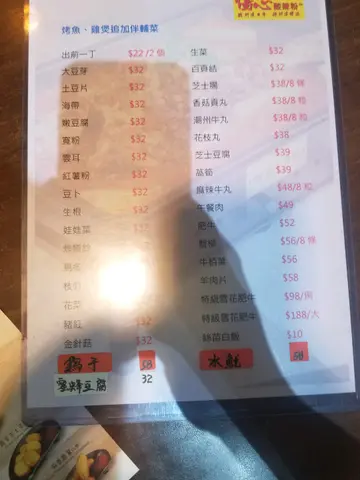 烤魚・雞煲追加伴輔菜
出前一丁 $22/2 個
大豆芽 $32
土豆片 $32
海帶 $32
嫩豆腐 $32
寬粉 $32
雲耳 $32
紅薯粉 $32
豆卜 $32
生根 $32
娃娃菜
花菜
豬紅 $32
金針菇 $32
鴨干 58
蜜蜂豆腐 32
生菜 $32
百頁結 $32
芝士腸 $38/8 條
香菇貢丸 $38/8 粒
潮州牛丸 $38/8 粒
花枝丸 $38
芝士豆腐 $39
萵筍 $39
麻辣牛丸 $48/8 粒
午餐肉 $49
肥牛 $52
蟹柳 $56/8 條
$56
羊肉片 $58
特級雪花肥牛 $98/周
特級雪花肥牛 $188/大
絲苗白飯 $10
水魷 58